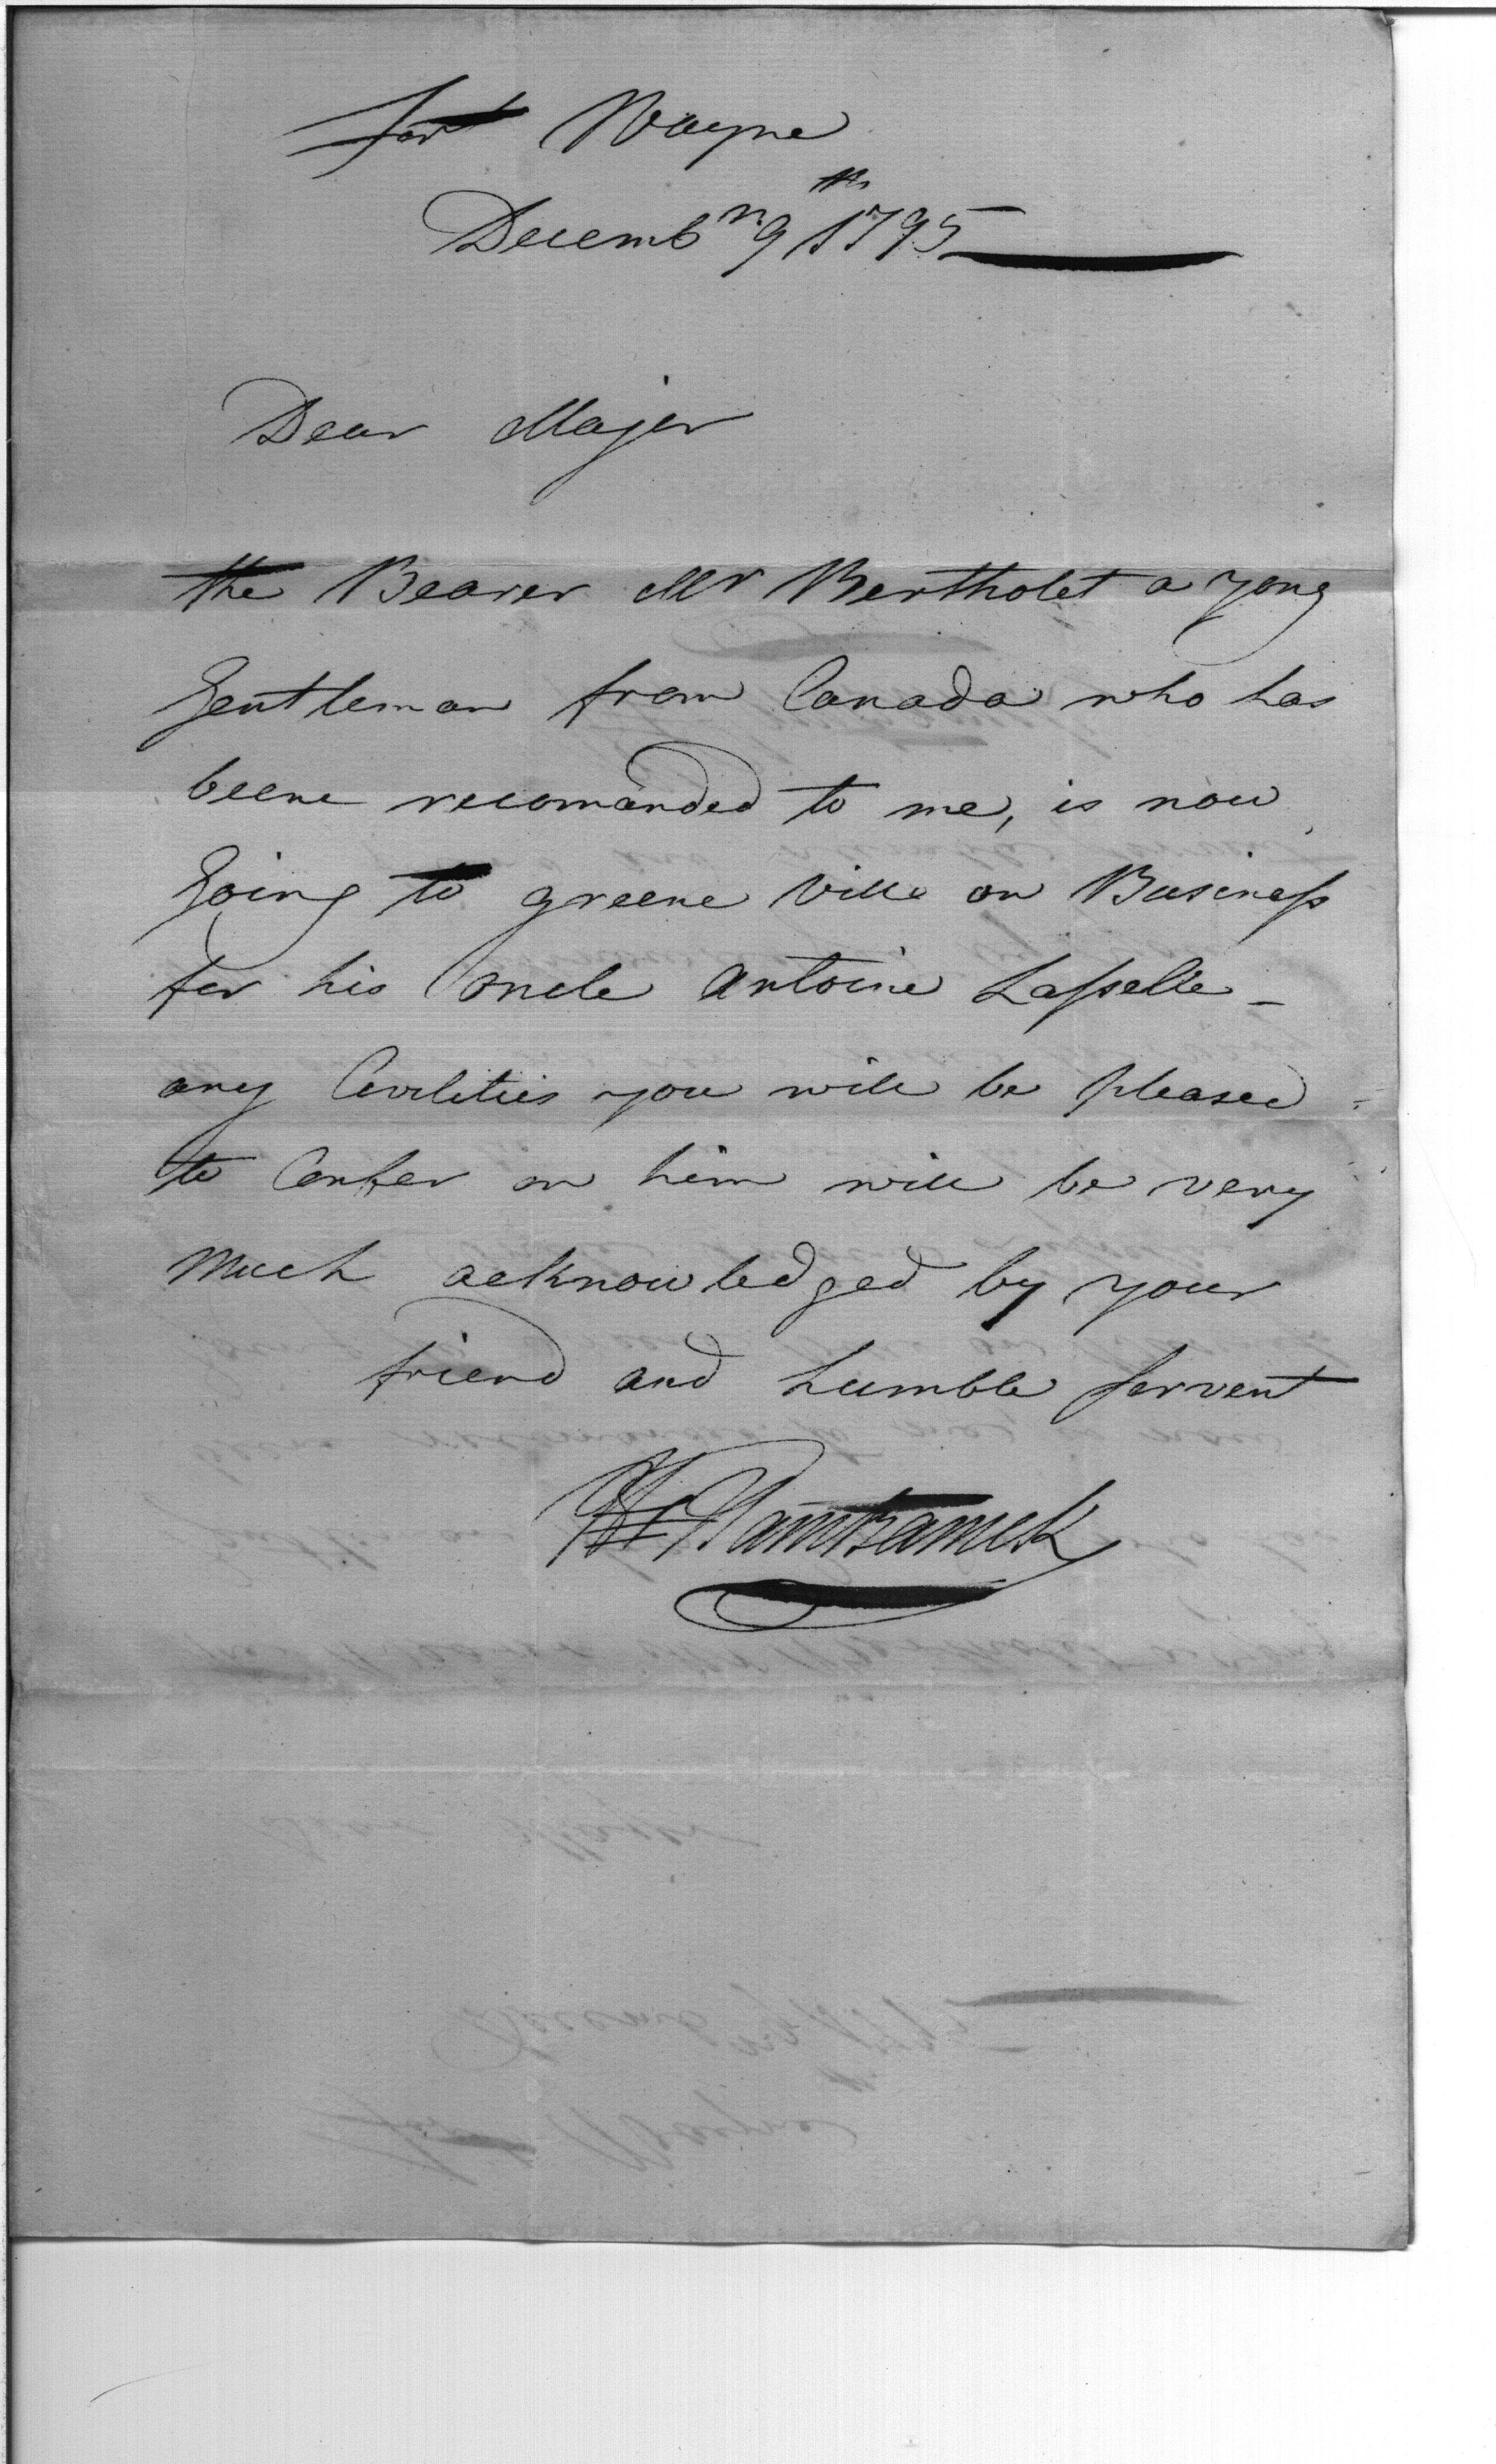 fort Wayne
Decemb^r 9^th 1795
Dear Majer
the Bearer M^r Bertholet a yong
gentleman from Canada who has
beene recomanded to me, is now
going to greene Ville on Business
for his Oncle antoine Lasselle -
any Civilities you will be pleased
to Confer on him will be very
Much acknowledged by your
friend and humble servent
JF Hamtramck